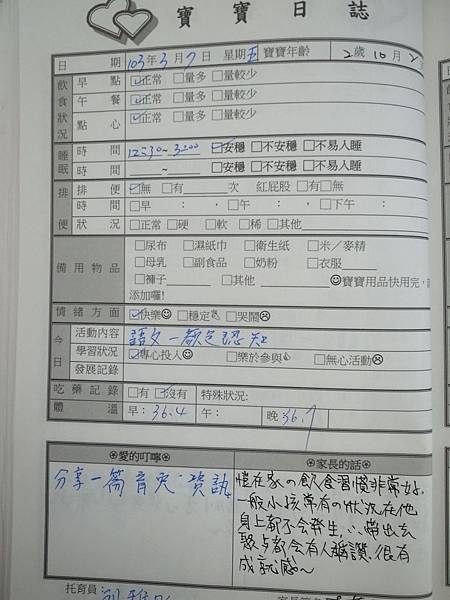 寶寶日誌
日期 103年3月7日 星期五 寶寶年齡 2歲10月
飲食狀況 早點 ☑正常 □量多 □量較少
午餐 ☑正常 □量多 □量較少
點心 ☑正常 □量多 □量較少
睡眠 時間 12:30~3:00 ☑安穩 □不安穩 □不易入睡
時間 ~ □安穩 □不安穩 □不易入睡
排便 排便 ☑無 □有 次 紅屁股 □有□無
時間 □早 : , □午 : , □下午 :
狀況 □正常 □硬 □軟 □稀 □其他
備用物品 □尿布 □濕紙巾 □衛生紙 □米／麥精
□母乳 □副食品 □奶粉 □衣服
□褲子 □其他 ☺寶寶用品快用完,
添加囉!
情緒方面 ☑快樂☺ □穩定 □哭鬧☹
今日 活動內容 語文-顏色認知
學習狀況 ☑專心投入☺ □樂於參與 □無心活動☹
發展記錄
吃藥記錄 □有 ☑沒有 特殊狀況:
體溫 早:36.4 午: 晚:36.7
愛的叮嚀
分享一篇育兒資訊
家長的話
愷在家の飲食習慣非常好,
一般小孩常有の狀況在他
身上都不會發生,∴帶出去
散步都會有人稱讚,很有
成就感~
托育員: